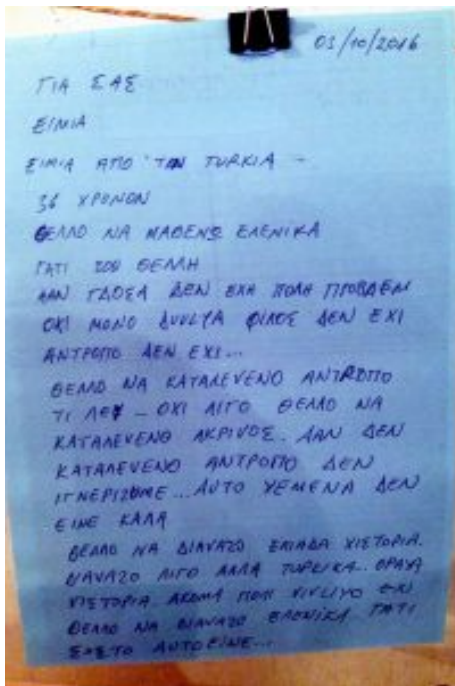 03/10/2016
ΓΙΑ ΣΑΣ
ΕΙΜΙΑ
ΕΙΜΙΑ ΑΠΟ ΤΩΝ TURKIA -
36 ΧΡΟΝΟΝ
ΘΕΛΛΟ ΝΑ ΜΑΘΕΝΩ ΕΛΕΝΙΚΑ
ΓΑΤΙ ΖΟΥ ΘΕΛΛΗ
ΑΑΝ ΓΛΟΣΑ ΔΕΝ ΕΧΗ ΠΟΛΗ ΠΡΟΒΛΕΜ
ΟΧΙ ΜΟΝΟ ΔUVLYA ΦΙΛΟΣ ΔΕΝ ΕΧΙ
ΑΝΤΡΟΠΟ ΔΕΝ ΕΧΙ...
ΘΕΛΛΟ ΝΑ ΚΑΤΑΛΕVΕΝΟ ΑΝΤΡΟΠΟ
ΤΙ ΛΕΥ - ΟΧΙ ΛΙΓΟ ΘΕΛΛΟ ΝΑ
ΚΑΤΑΛΕVΕΝΟ ΑΚΡΙVΟΣ. ΑΑΝ ΔΕΝ
ΚΑΤΑΛΕVΕΝΟ ΑΝΤΡΟΠΟ ΔΕΝ
ΙΓΝΕΡΙΖΟΜΕ... ΑUΤΟ ΥΕΜΕΝΑ ΔΕΝ
ΕΙΝΕ ΚΑΛΑ
ΘΕΛΛΟ ΝΑ ΔΙΑVΑΖΟ ΕΛΙΑΔΑ ΧΙΣΤΟΡΙΑ.
ΔΙΑVΑΖΟ ΛΙΓΟ ΑΛΛΑ TURCIKA..
ΧΙΣΤΟΡΙΑ ΑΚΟΜΑ ΠΟΛΙ VIVLIYO ΕΧΙ
ΘΕΛΛΟ ΝΑ ΔΙΑVΑΖΟ ΕΛΕΝΙΚΑ ΓΑΤΙ
ΣΟΣΤΟ ΑUΤΟ ΕΙΝΕ...